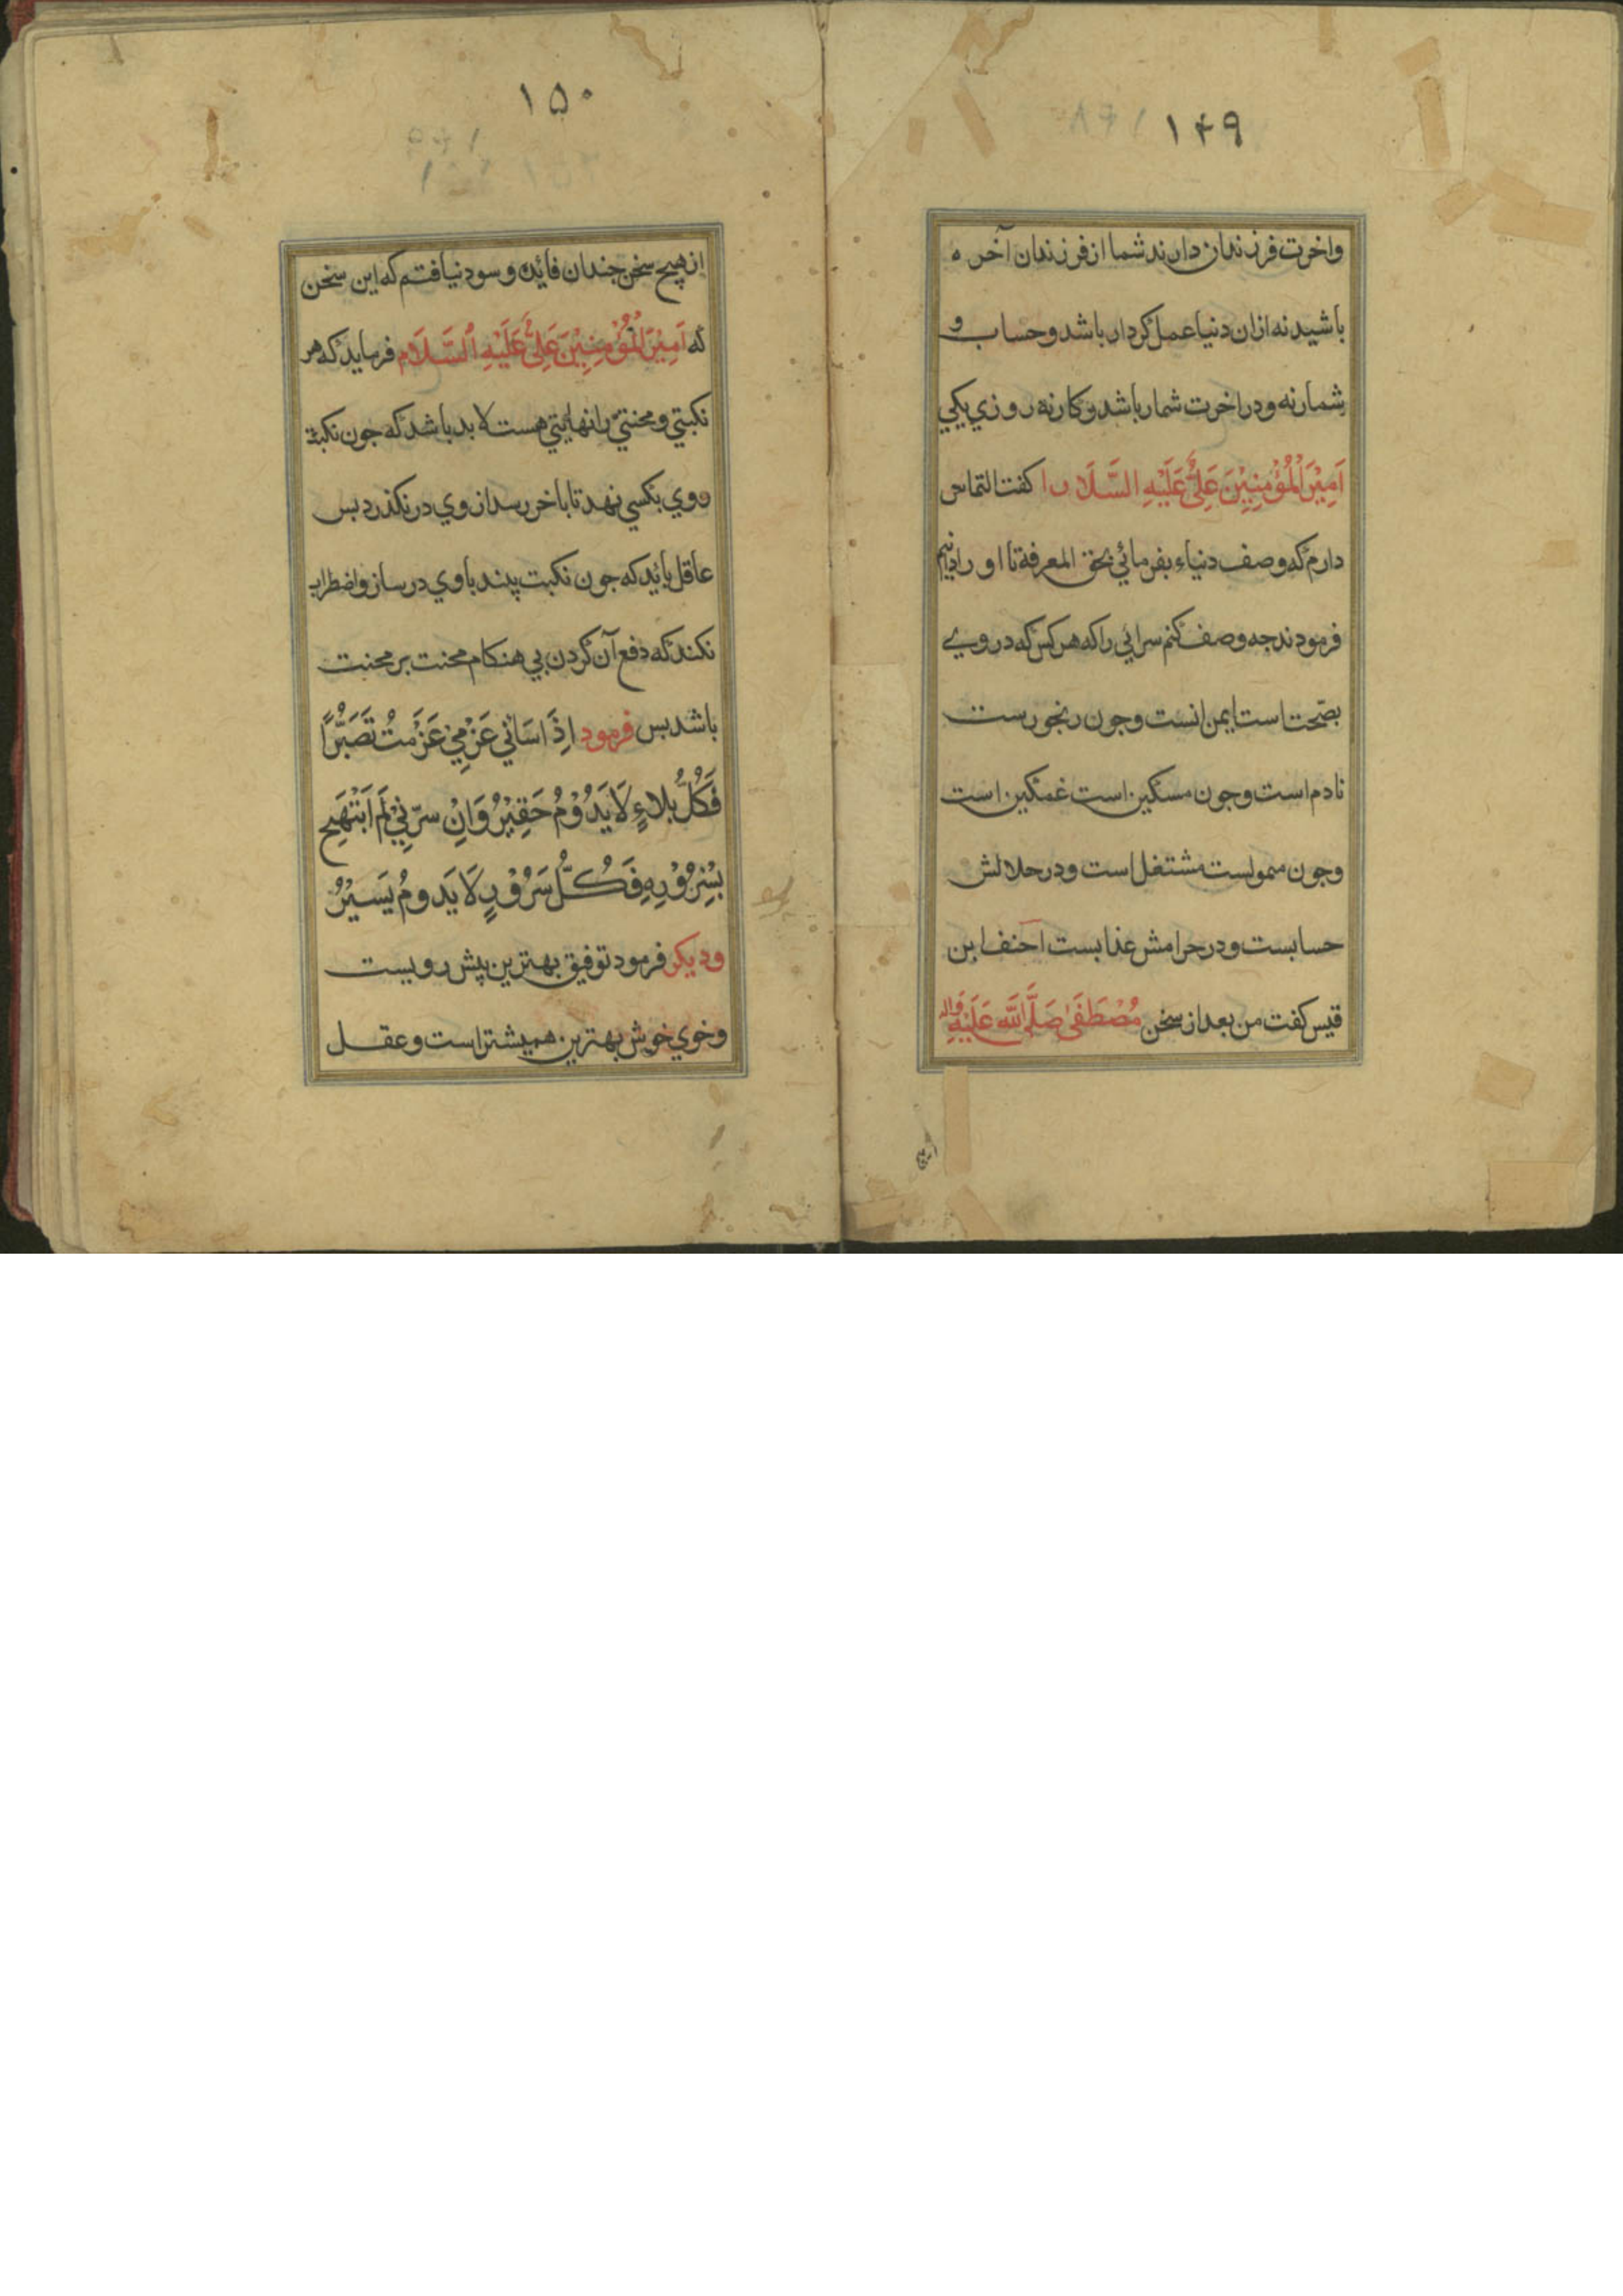 ۱۴۹
واخرت فرزندان دارند شما از فرزندان آخره
باشید نه ازان دنیا عمل کردار باشد و حساب و
شمار نه و در اخرت شمار باشد و کار نه روزی یکی
اَمِیْرَالْمُؤْمِنِیْنَ عَلِیْ عَلَیْهِ السَّلَا را کفت التماس
دارم که وصف دنیاء بفرمائی بحق المعرفة تا او را
فرمودند جه وصف کنم سرائی را که هر کس که در وی
بصّحت است ایمن انست و جون رنجورست
نادم است و جون مسکین است غمکین است
وجون ممولست مشتغل است و در حلالش
حسابست و در حرامش عذابست احنف ابن
قیس کفت من بعد از سخن مُصْطَفَیٰ صَلَّی اللّٰه عَلَیْهِ وَاله
۱۵۰
از هیچ سخن جندان فائده و سود نیافتم که این سخن
که اَمِیْرَالْمُؤْمِنِیْنَ عَلِیْ عَلَیْهِ السَّلَام فرماید که هر
نکبتی و محنتی را نهایتی هست لابد باشد که جون نکبة
روی بکسی نهد تا باخر رسد از وی در نکذرد بس
عاقل بائید که جون نکبت بیند با وی در ساز و اضطراب
نکند که دفع آن کردن بی هنکام محنت بر محنت
باشد بس فرمود اِذَا سَائَنِي عَزْمِي عَزَمتُ تَصَبُّرًا
فَكُلُّ بلاءٍ لَا يَدُوْمُ حَقِيْرُ وَاِنْ سرّنِيْ لَمْ اَبْتَهِج
بِسُرُوْرِهِ فَكُلُّ سَرُوْرٍ لَا يَدومُ يَسَيْرُ
ودیکر فرمود توفیق بهترین پیش رویست
وخوي خوش بهترین همیشتر است و عقل